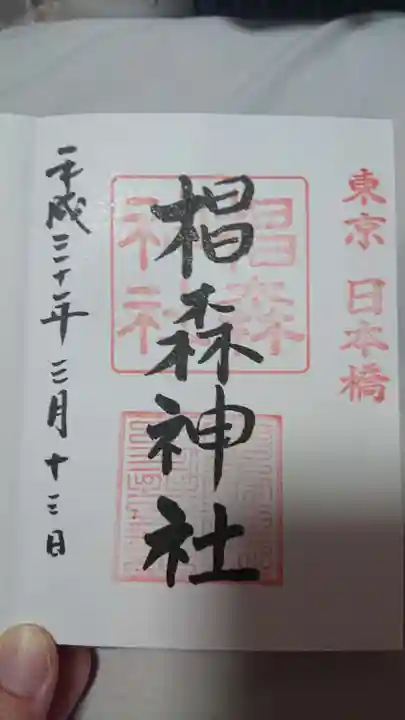 東京 日本橋
椙森神社
椙森
神社
平成三十一年三月十三日